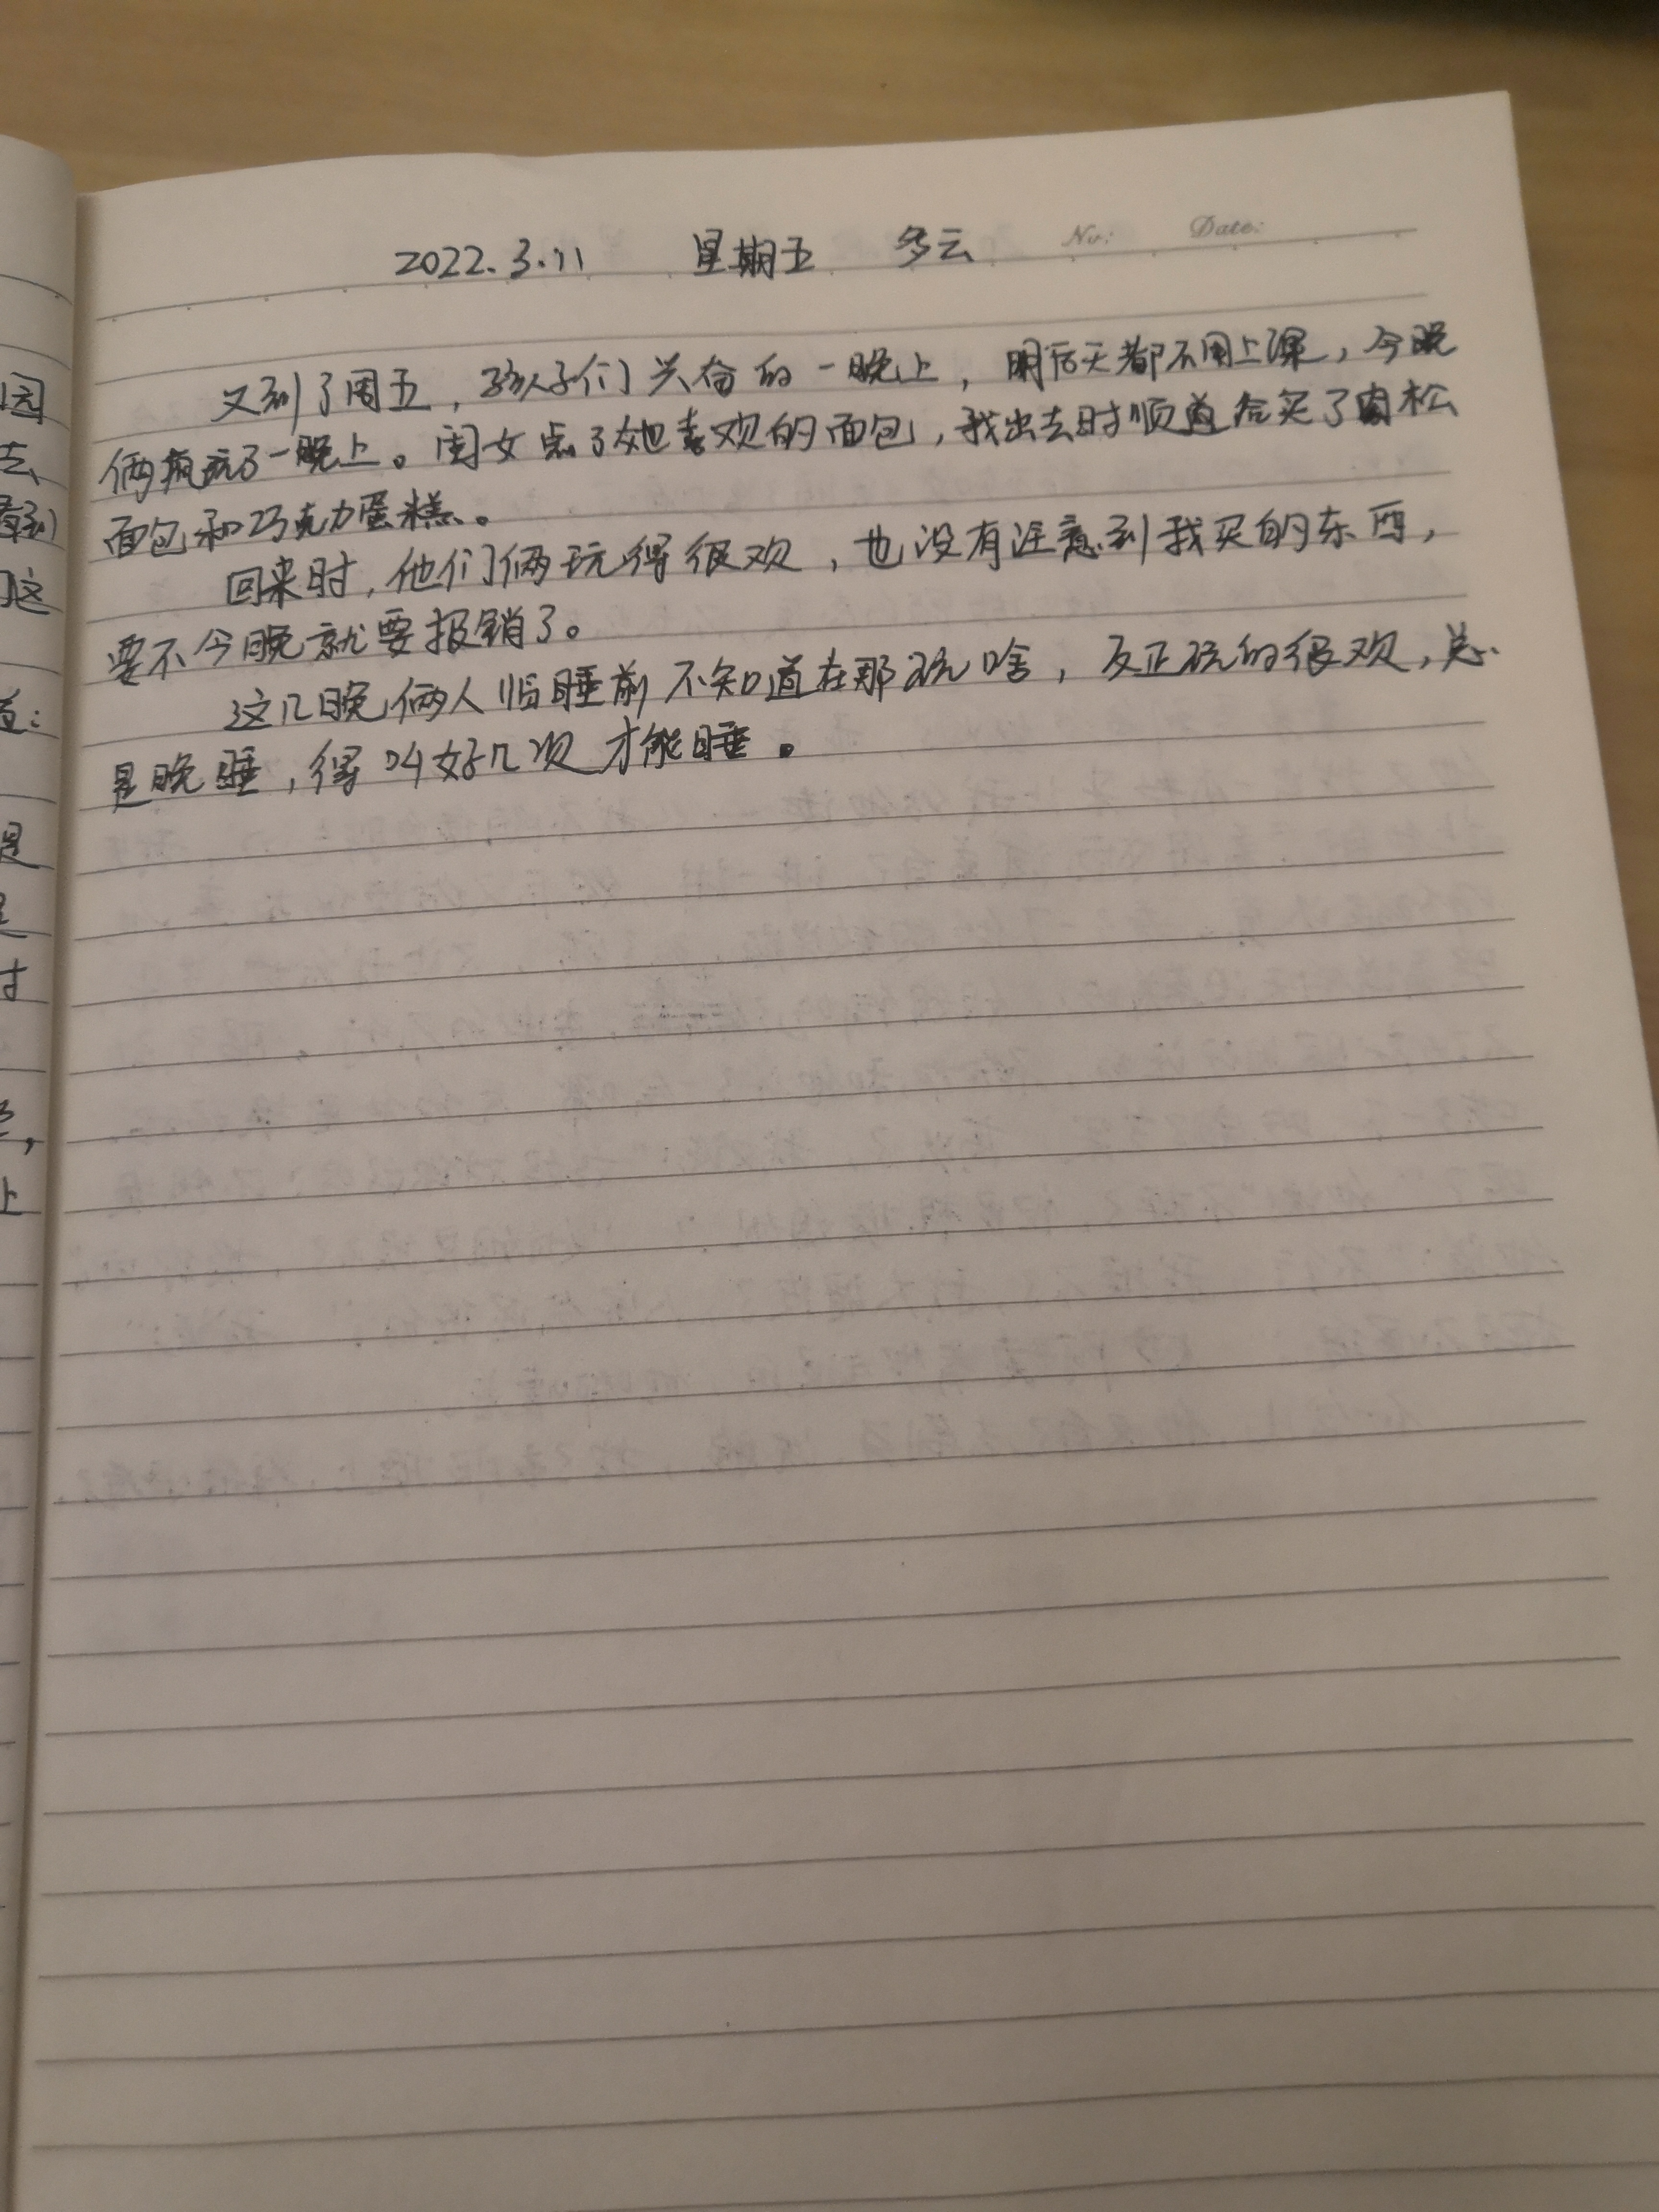 No: Date:
2022.3.11 星期五 多云
又到了周五，孩子们兴奋的一晚上，明后天都不用上课，今晚
俩疯玩了一晚上。闺女点了她喜欢的面包，我出去时顺道给买了肉松
面包和巧克力蛋糕。
回来时，他们俩玩得很欢，也没有注意到我买的东西，
要不今晚就要报销了。
这几晚俩人临睡前不知道在那玩啥，反正玩的很欢，总
是晚睡，得叫好几次才能睡。